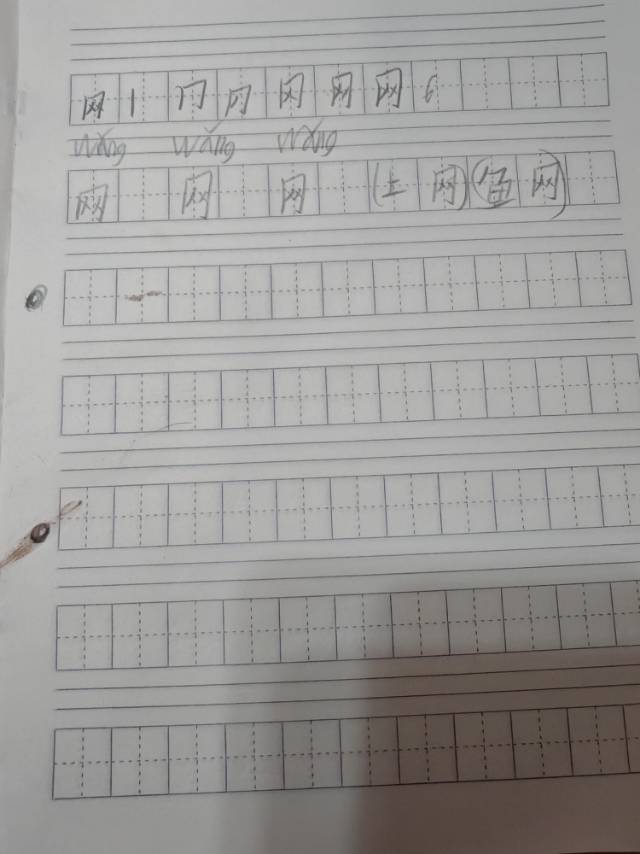 网 丨 冂 冈 冈 网 网 6
wǎng wǎng wǎng
网 网 网 (上网)(鱼网)